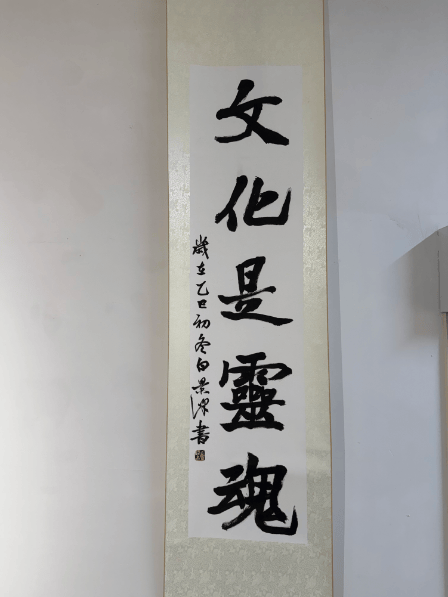 文化是靈魂
歲在乙巳初冬白景洪書